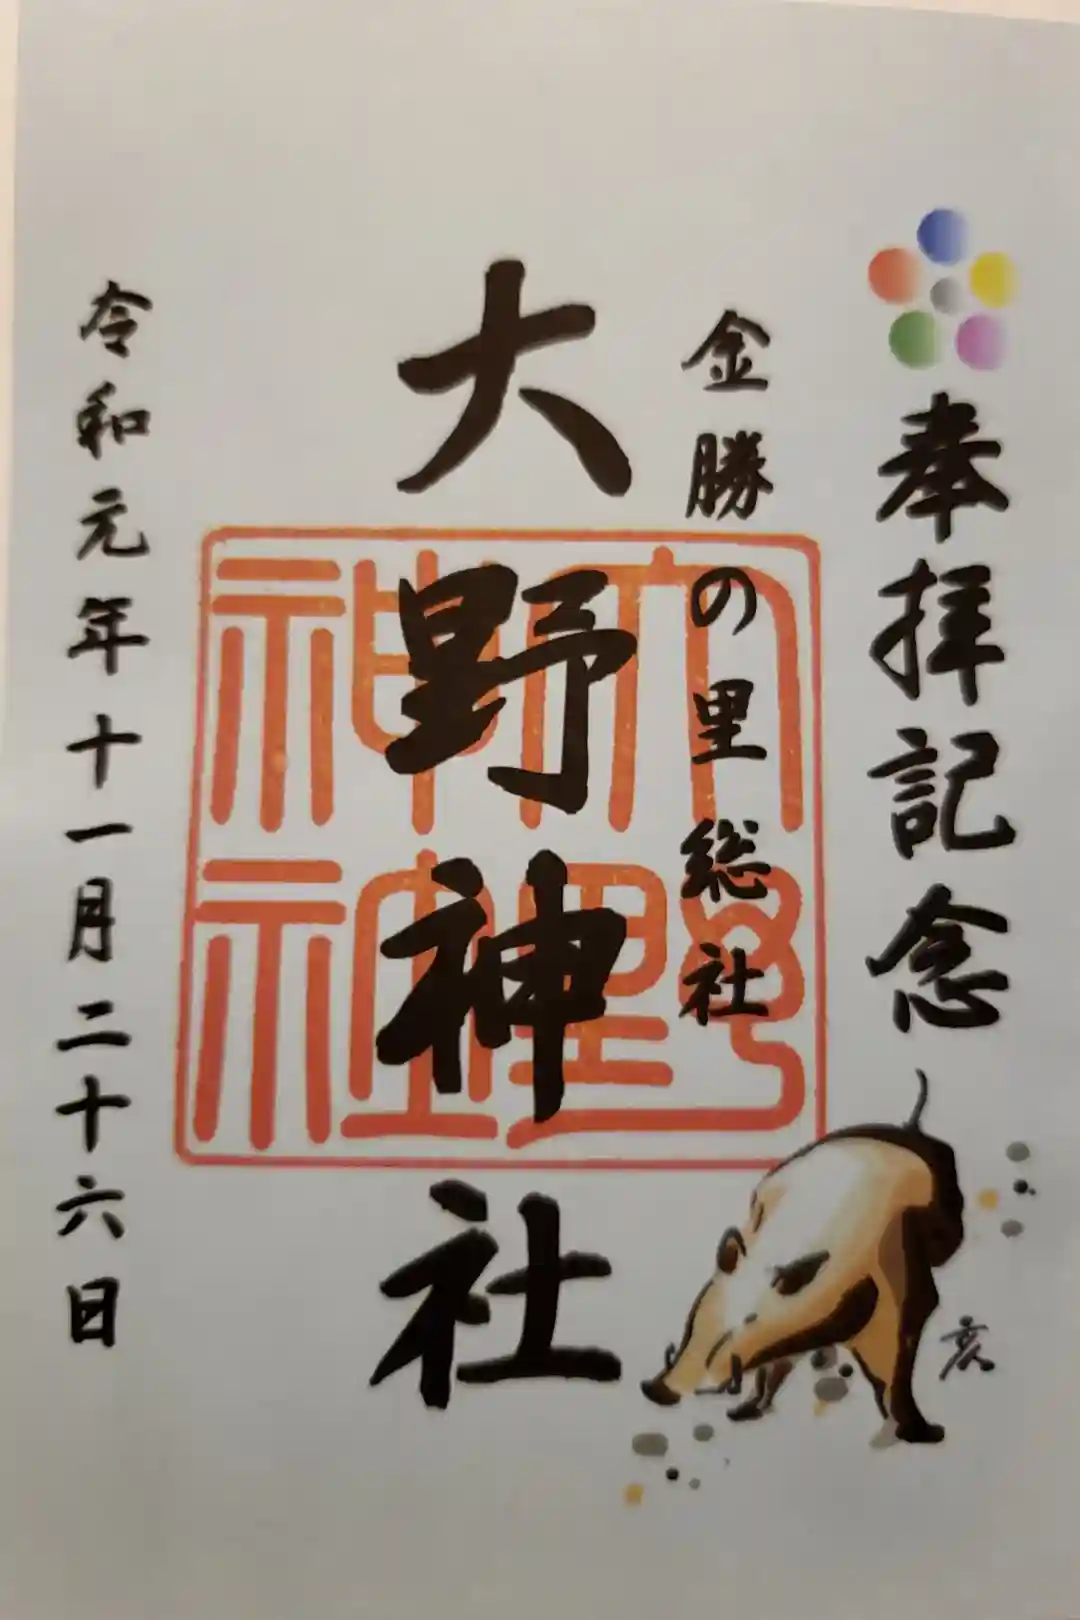 奉拝記念
金勝の里 総社
大野神社
令和元年十一月二十六日
大野
神社
亥